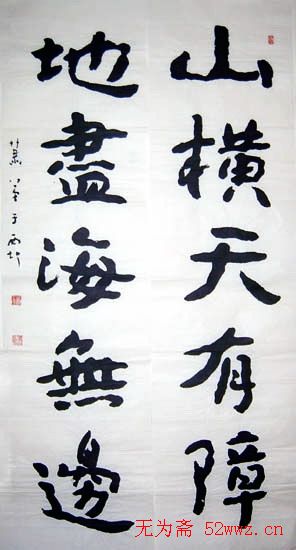 山橫天有障
地盡海無邊
无为斋 52wwz.cn